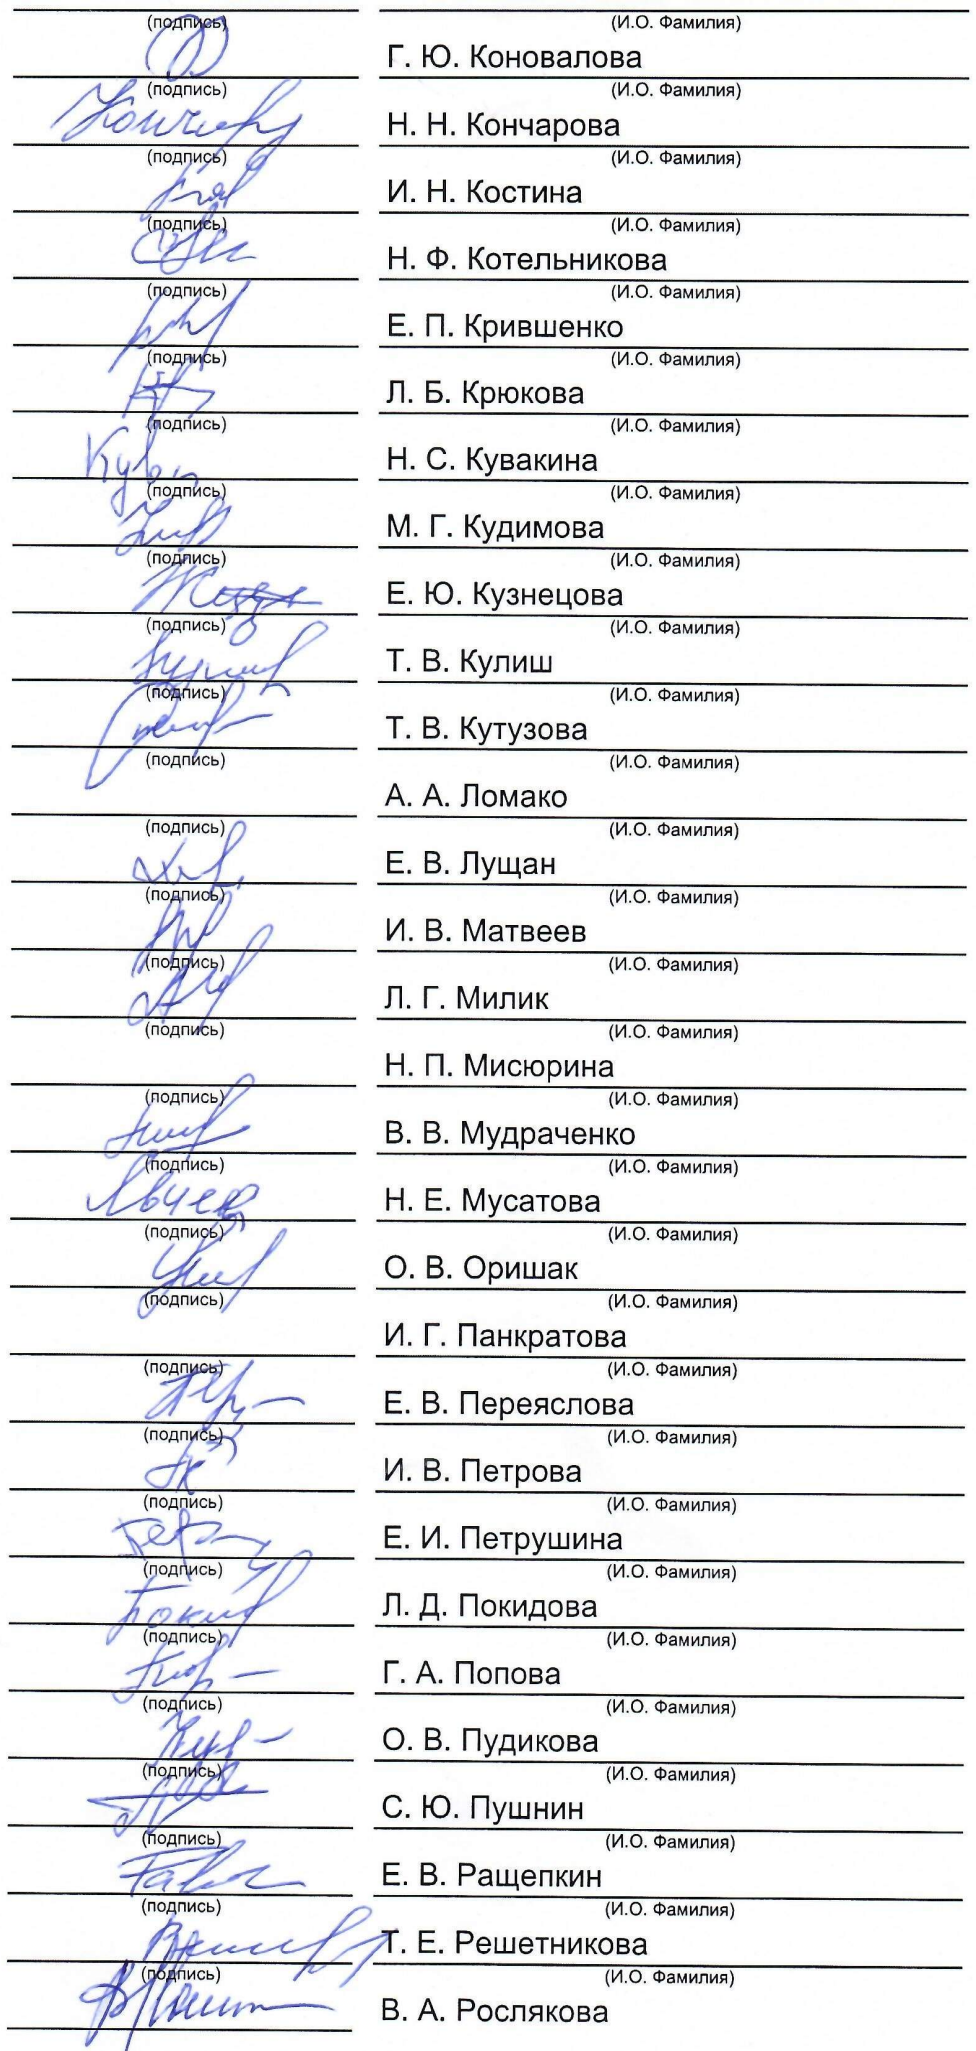 (подпись) (И.О. Фамилия)
Г. Ю. Коновалова
(подпись) (И.О. Фамилия)
Н. Н. Кончарова
(подпись) (И.О. Фамилия)
И. Н. Костина
(подпись) (И.О. Фамилия)
Н. Ф. Котельникова
(подпись) (И.О. Фамилия)
Е. П. Крившенко
(подпись) (И.О. Фамилия)
Л. Б. Крюкова
(подпись) (И.О. Фамилия)
Н. С. Кувакина
(подпись) (И.О. Фамилия)
М. Г. Кудимова
(подпись) (И.О. Фамилия)
Е. Ю. Кузнецова
(подпись) (И.О. Фамилия)
Т. В. Кулиш
(подпись) (И.О. Фамилия)
Т. В. Кутузова
(подпись) (И.О. Фамилия)
А. А. Ломако
(подпись) (И.О. Фамилия)
Е. В. Лущан
(подпись) (И.О. Фамилия)
И. В. Матвеев
(подпись) (И.О. Фамилия)
Л. Г. Милик
(подпись) (И.О. Фамилия)
Н. П. Мисюрина
(подпись) (И.О. Фамилия)
В. В. Мудраченко
(подпись) (И.О. Фамилия)
Н. Е. Мусатова
(подпись) (И.О. Фамилия)
О. В. Оришак
(подпись) (И.О. Фамилия)
И. Г. Панкратова
(подпись) (И.О. Фамилия)
Е. В. Переяслова
(подпись) (И.О. Фамилия)
И. В. Петрова
(подпись) (И.О. Фамилия)
Е. И. Петрушина
(подпись) (И.О. Фамилия)
Л. Д. Покидова
(подпись) (И.О. Фамилия)
Г. А. Попова
(подпись) (И.О. Фамилия)
О. В. Пудикова
(подпись) (И.О. Фамилия)
С. Ю. Пушнин
(подпись) (И.О. Фамилия)
Е. В. Ращепкин
(подпись) (И.О. Фамилия)
Т. Е. Решетникова
(подпись) (И.О. Фамилия)
В. А. Рослякова